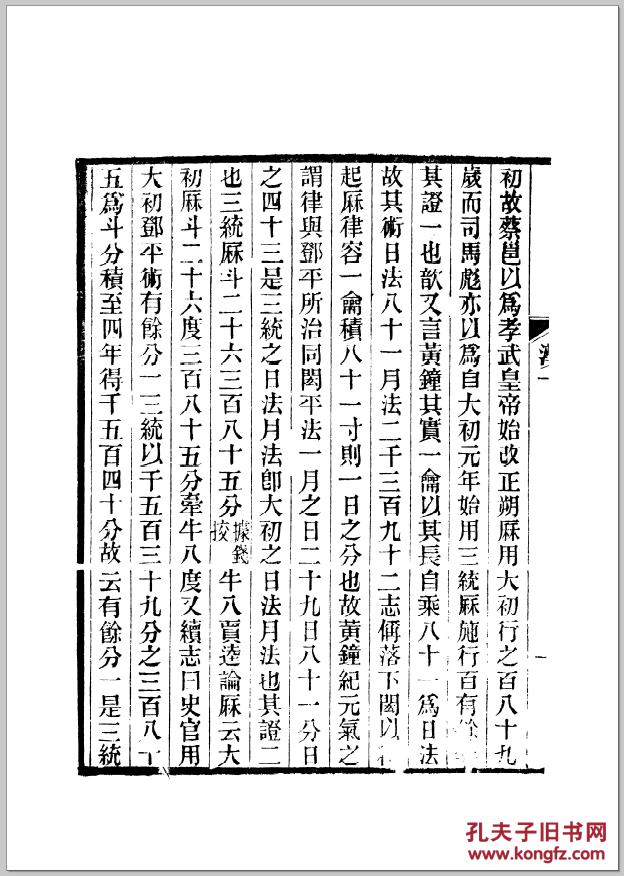 初故蔡邕以爲孝武皇帝始改正朔厤用大初行之百八十九
歲而司馬彪亦以爲自大初元年始用三統厤施行百有餘
其證一也歆又言黃鐘其實一龠以其長自乘八十一爲日法
故其術日法八十一月法二千三百九十二志偁落下閎以
起厤律容一龠積八十一寸則一日之分也故黃鐘紀元氣之
謂律與鄧平所治同閎平法一月之日二十九日八十一分日
之四十三是三統之日法月法卽大初之日法月法也其證二
也三統厤斗二十六三百八十五分據錢挍牛八賈逵論厤云大
初厤斗二十六度三百八十五分牽牛八度又續志曰史官用
大初鄧平術有餘分一三統以千五百三十九分之三百八十
五爲斗分積至四年得千五百四十分故云有餘分一是三統
孔夫子旧书网
www.kongfz.com